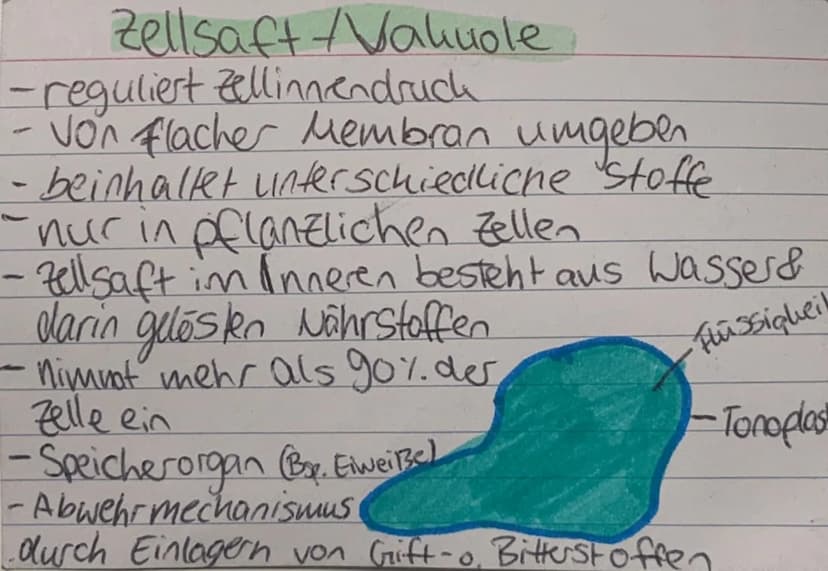 Zellsaft-/Vakuole
- reguliert Zellinnendruck
- von flacher Membran umgeben
- beinhaltet unterschiedliche Stoffe
- nur in pflanzlichen Zellen
- Zellsaft im Inneren besteht aus Wasser &
darin gelösten Nährstoffen
Flüssigkeit
- nimmt mehr als 90% der
Zelle ein
- Tonoplast
- Speicherorgan (Bsp. Eiweiße)
- Abwehrmechanismus
durch Einlagern von Gift- o. Bitterstoffen